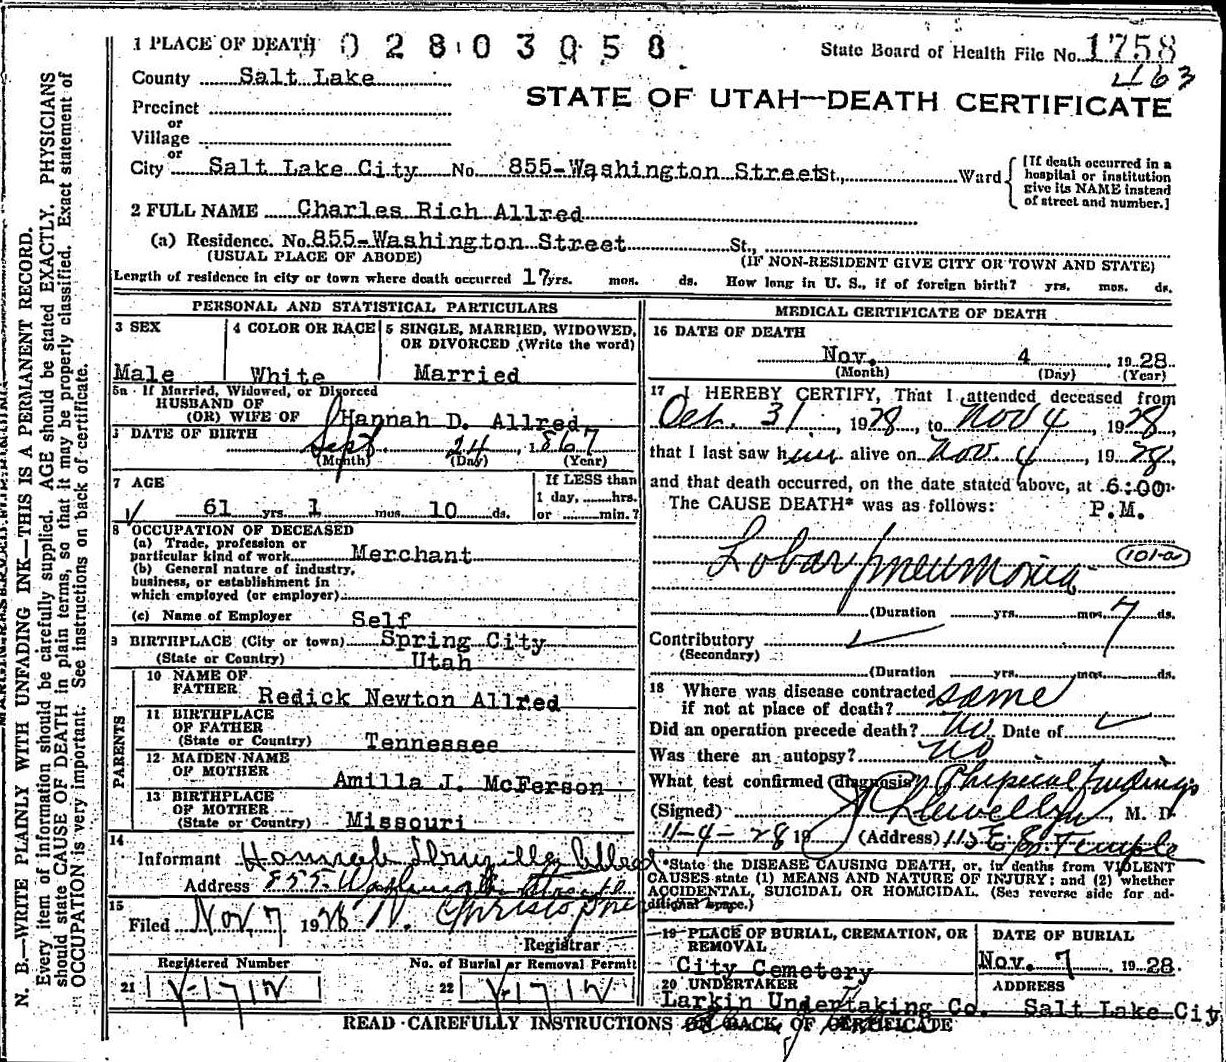 1 PLACE OF DEATH 02803058 State Board of Health File No. 1758
463
County Salt Lake
STATE OF UTAH—DEATH CERTIFICATE
Precinct
or
Village
or
City Salt Lake City No. 855-Washington Street St., Ward
[If death occurred in a
hospital or institution
give its NAME instead
of street and number.]
2 FULL NAME Charles Rich Allred
(a) Residence. No. 855-Washington Street St.,
(USUAL PLACE OF ABODE) (IF NON-RESIDENT GIVE CITY OR TOWN AND STATE)
Length of residence in city or town where death occurred 17 yrs. mos. ds. How long in U. S., if of foreign birth? yrs. mos. ds.
PERSONAL AND STATISTICAL PARTICULARS
3 SEX 4 COLOR OR RACE 5 SINGLE, MARRIED, WIDOWED,
OR DIVORCED (Write the word)
Male White Married
5a If Married, Widowed, or Divorced
HUSBAND OF
(OR) WIFE OF Hannah D. Allred
DATE OF BIRTH
Sept 24, 1867
(Month) (Day) (Year)
7 AGE If LESS than
1 day, hrs.
61 yrs. 1 mos. 10 ds. or min.?
8 OCCUPATION OF DECEASED
(a) Trade, profession or
particular kind of work Merchant
(b) General nature of industry,
business, or establishment in
which employed (or employer)
(c) Name of Employer Self
9 BIRTHPLACE (City or town) Spring City
(State or Country) Utah
PARENTS
10 NAME OF
FATHER Redick Newton Allred
11 BIRTHPLACE
OF FATHER
(State or Country) Tennessee
12 MAIDEN NAME
OF MOTHER Amilla J. McFerson
13 BIRTHPLACE
OF MOTHER
(State or Country) Missouri
14
Informant Hannah Allred
Address 855 Washington Street
15
Filed Nov 7 1928
Registrar
Registered Number No. of Burial or Removal Permit
21 V-1712 22 V-1712
MEDICAL CERTIFICATE OF DEATH
16 DATE OF DEATH
Nov. 4 1928
(Month) (Day) (Year)
17 I HEREBY CERTIFY, That I attended deceased from
Oct. 31, 1928, to Nov 4, 1928
that I last saw him alive on Nov. 4, 1928,
and that death occurred, on the date stated above, at 6:00
The CAUSE DEATH* was as follows: P.M.
Lobar pneumonia 101-a
(Duration yrs. mos. 7 ds.
Contributory
(Secondary)
(Duration yrs. mos. ds.
18 Where was disease contracted
if not at place of death? same
Did an operation precede death? No Date of
Was there an autopsy? no
What test confirmed diagnosis? Physical findings
(Signed) Llewellyn, M. D.
11-4-28 19 (Address) 115 E. So. Temple
*State the DISEASE CAUSING DEATH, or, in deaths from VIOLENT
CAUSES state (1) MEANS AND NATURE OF INJURY; and (2) whether
ACCIDENTAL, SUICIDAL OR HOMICIDAL. (See reverse side for ad-
ditional space.)
19 PLACE OF BURIAL, CREMATION, OR
REMOVAL DATE OF BURIAL
City Cemetery Nov. 7 1928.
20 UNDERTAKER ADDRESS
Larkin Undertaking Co. Salt Lake City
READ CAREFULLY INSTRUCTIONS ON BACK OF CERTIFICATE
N. B.—WRITE PLAINLY WITH UNFADING INK—THIS IS A PERMANENT RECORD.
Every item of information should be carefully supplied. AGE should be stated EXACTLY. PHYSICIANS
should state CAUSE OF DEATH in plain terms, so that it may be properly classified. Exact statement of
OCCUPATION is very important. See instructions on back of certificate.